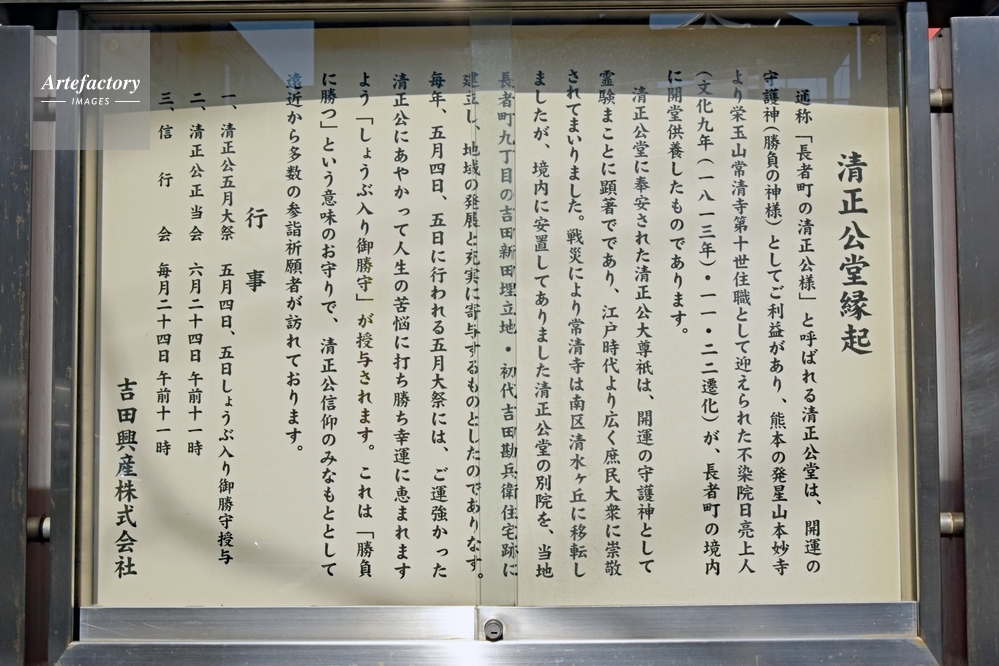 清正公堂縁起
通称「長者町の清正公様」と呼ばれる清正公堂は、開運の
守護神(勝負の神様)としてご利益があり、熊本の発星山本妙寺
より栄玉山常清寺第十世住職として迎えられた不染院日亮上人
(文化九年(一八一三年)・一一・二二遷化)が、長者町の境内
に開堂供養したものであります。
清正公堂に奉安された清正公大尊祇は、開運の守護神として
霊験まことに顕著でであり、江戸時代より広く庶民大衆に崇敬
されてまいりました。戦災により常清寺は南区清水ヶ丘に移転し
ましたが、境内に安置してありました清正公堂の別院を、当地
長者町九丁目の吉田新田埋立地・初代吉田勘兵衛住宅跡に
建立し、地域の発展と充実に寄与するものとしたのでありなす。
毎年、五月四日、五日に行われる五月大祭には、ご運強かった
清正公にあやかって人生の苦悩に打ち勝ち幸運に恵まれます
よう「しょうぶ入り御勝守」が授与されます。これは「勝負
に勝つ」という意味のお守りで、清正公信仰のみなもととして
遠近から多数の参詣祈願者が訪れております。
行事
一、清正公五月大祭 五月四日、五日しょうぶ入り御勝守授与
二、清正公正当会 六月二十四日 午前十一時
三、信行会 毎月二十四日 午前十一時
吉田興産株式会社
Artefactory
IMAGES